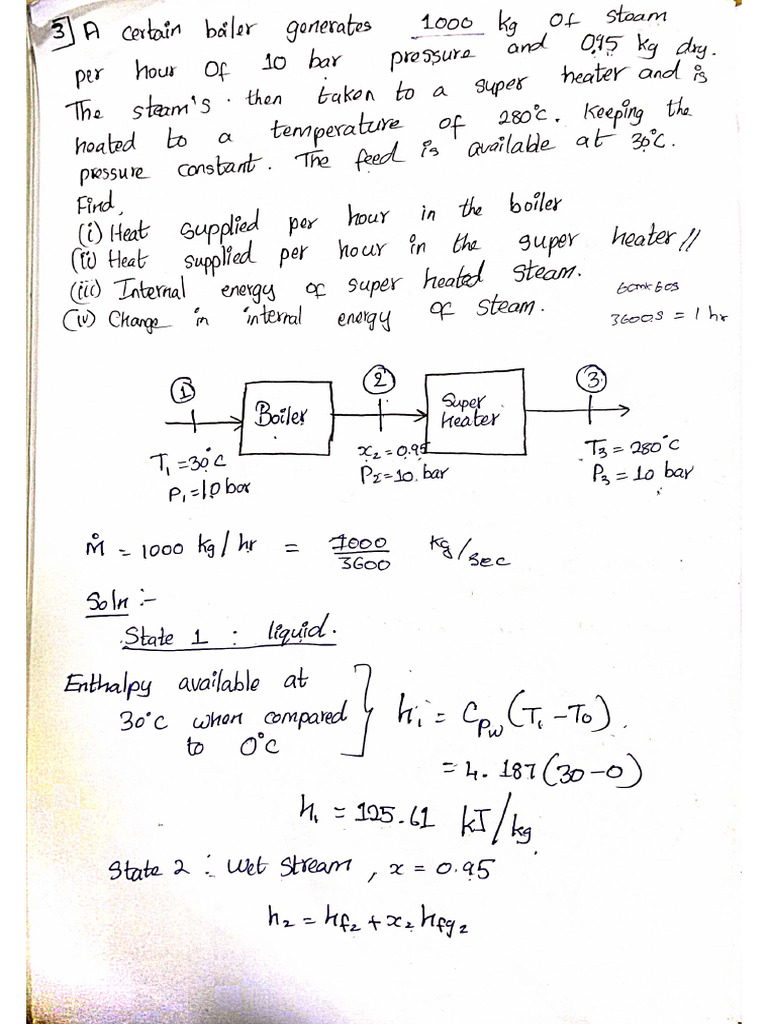 3] A certain boiler generates 1000 kg of steam
per hour of 10 bar pressure and 0.95 kg dry.
The steam's then taken to a super heater and is
heated to a temperature of 280°C. Keeping the
pressure constant. The feed is available at 30°C.
Find,
(i) Heat supplied per hour in the boiler
(ii) Heat supplied per hour in the super heater //
(iii) Internal energy of super heated steam.
(iv) Change in internal energy of steam.
3600s = 1 hr
1
2
3
Boiler
Super heater
T₁ = 30°C
P₁ = 10 bar
x₂ = 0.95
P₂ = 10. bar
T₃ = 280°C
P₃ = 10 bar
ṁ = 1000 kg/hr = 1000/3600 kg/sec
Soln :-
State 1 : liquid.
Enthalpy available at
30°C when compared
to 0°C } h₁ = Cpw (T₁ - T₀).
= 4.187 (30-0)
h₁ = 125.61 kJ/kg.
State 2 : Wet Stream, x = 0.95
h₂ = hf₂ + x₂ hfg₂